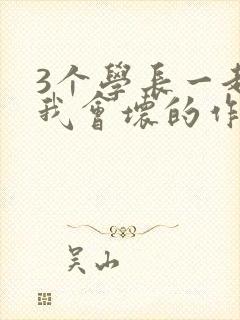 3个學長一起
我會壞的作
吴山